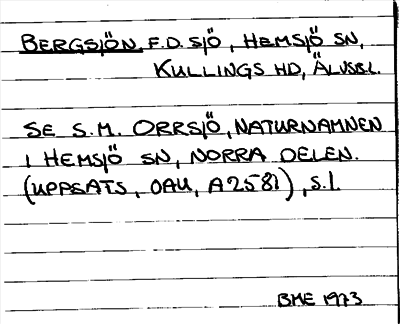 BERGSJÖN, F.D. SJÖ, HEMSJÖ SN,
KULLINGS HD, ÄLVSBL.
SE S.M. ORRSJÖ, NATURNAMNEN
I HEMSJÖ SN, NORRA DELEN.
(UPPSATS, OAU, A2581), S.1.
BME 1973